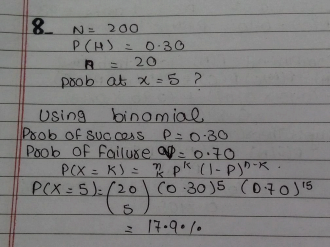 8_ N = 200
P(H) = 0.30
n = 20
prob at x = 5 ?
Using binomial
Prob of success P = 0.30
Prob of failure q = 0.70
P(X = K) = n K P^K (1-P)^n-K.
P(X = 5) = (20 5) (0.30)^5 (0.70)^15
= 17.9 %